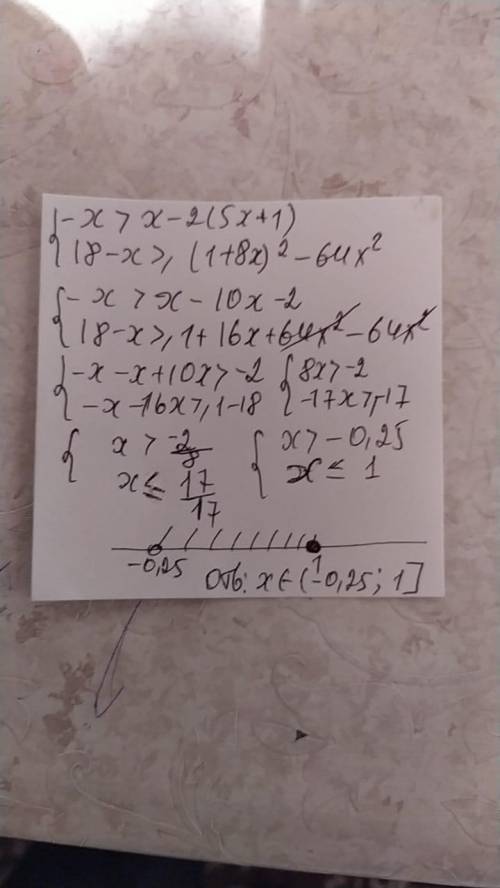 {-x > x-2(5x+1)
{18-x ≥ (1+8x)²-64x²
{-x > x-10x-2
{18-x ≥ 1+16x+64x²-64x²
{-x-x+10x>-2 {8x>-2
{-x-16x≥1-18 {-17x≥-17
{x > -2/8 {x>-0,25
{x≤ 17/17 {x≤1
-0,25 1
Отв: x∈(-0,25; 1]